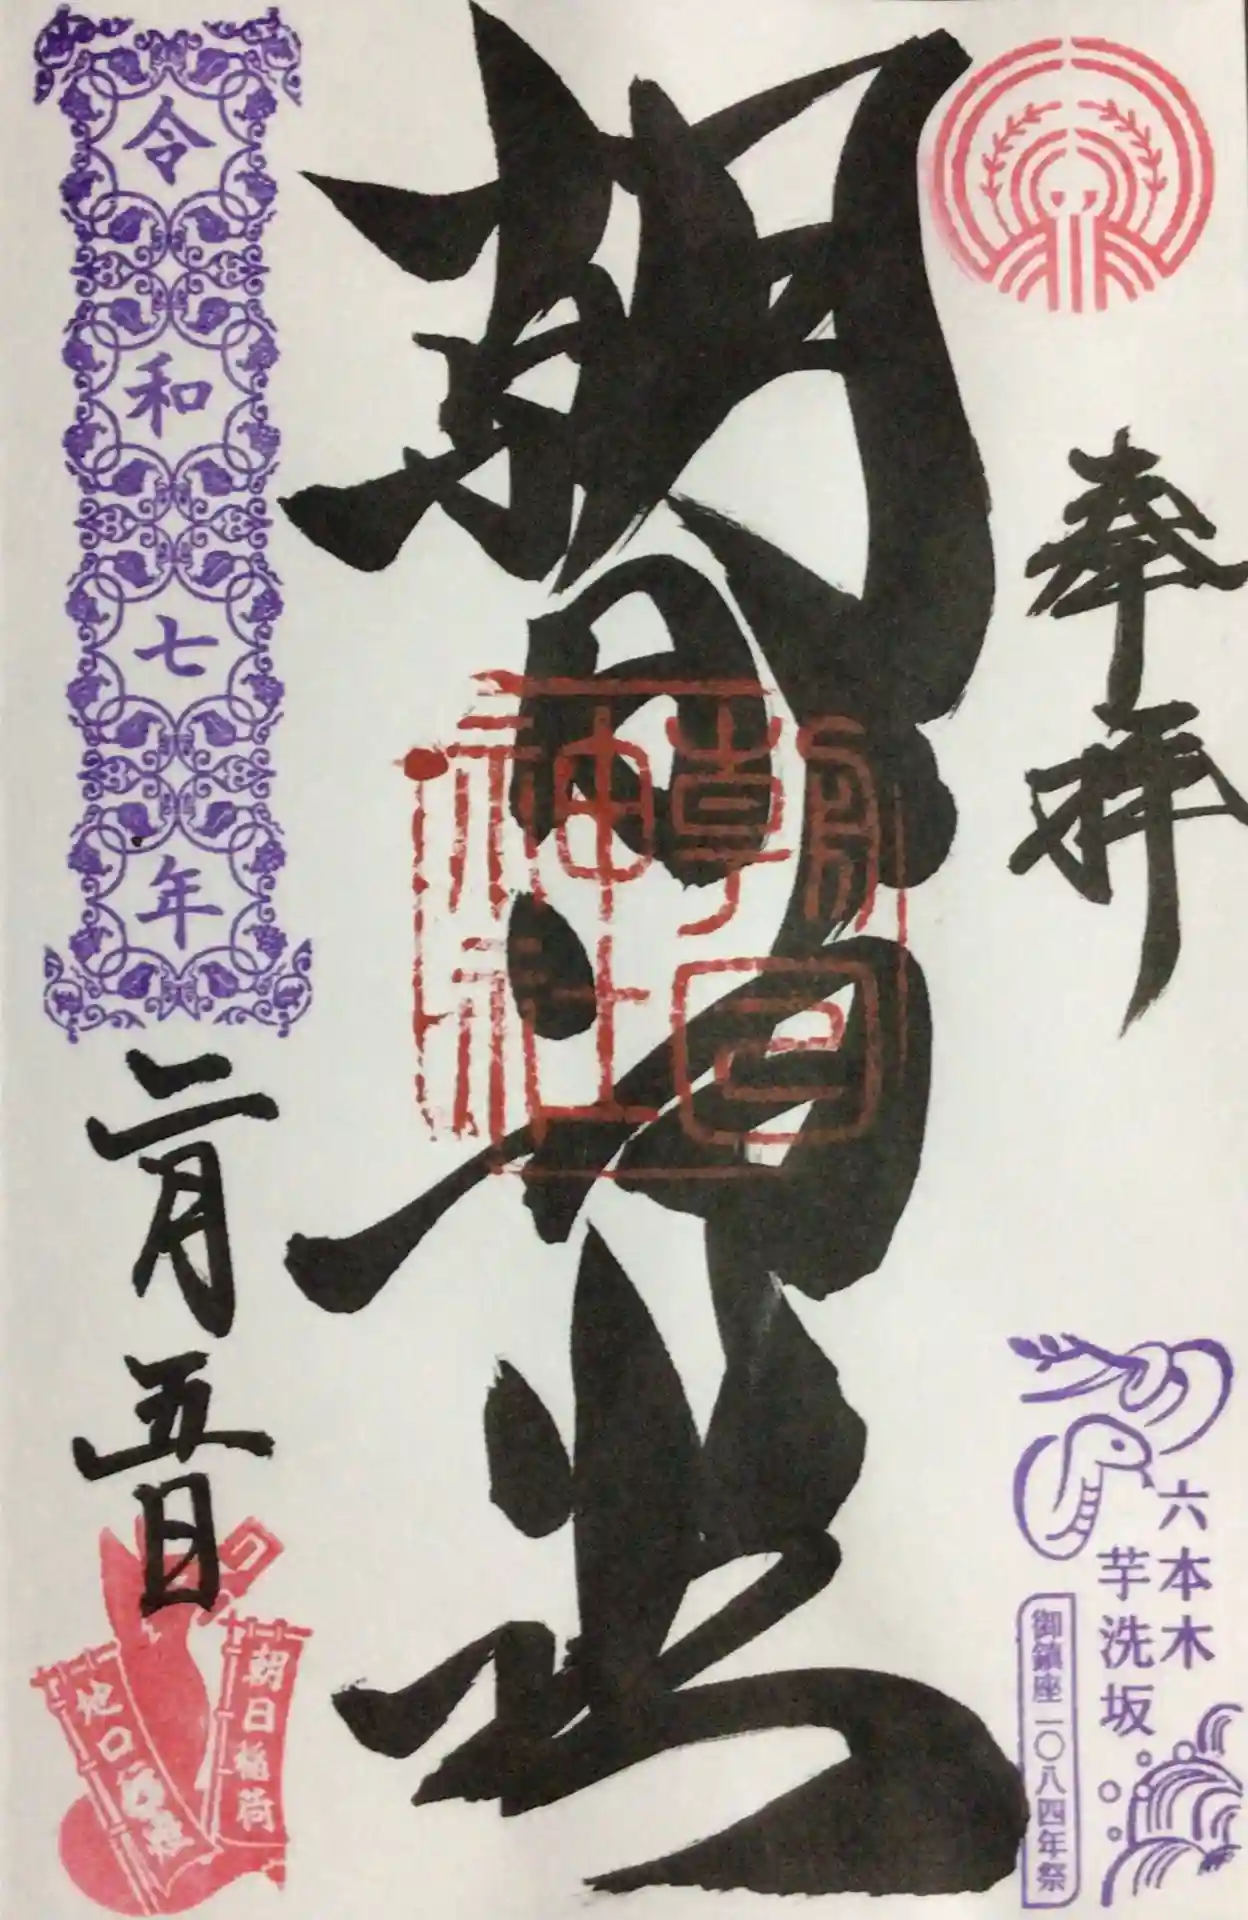 奉拝
六本木
芋洗坂
御鎮座一〇八四年祭
朝日神社
朝日
神社
令和七年
二月五日
朝日稲荷